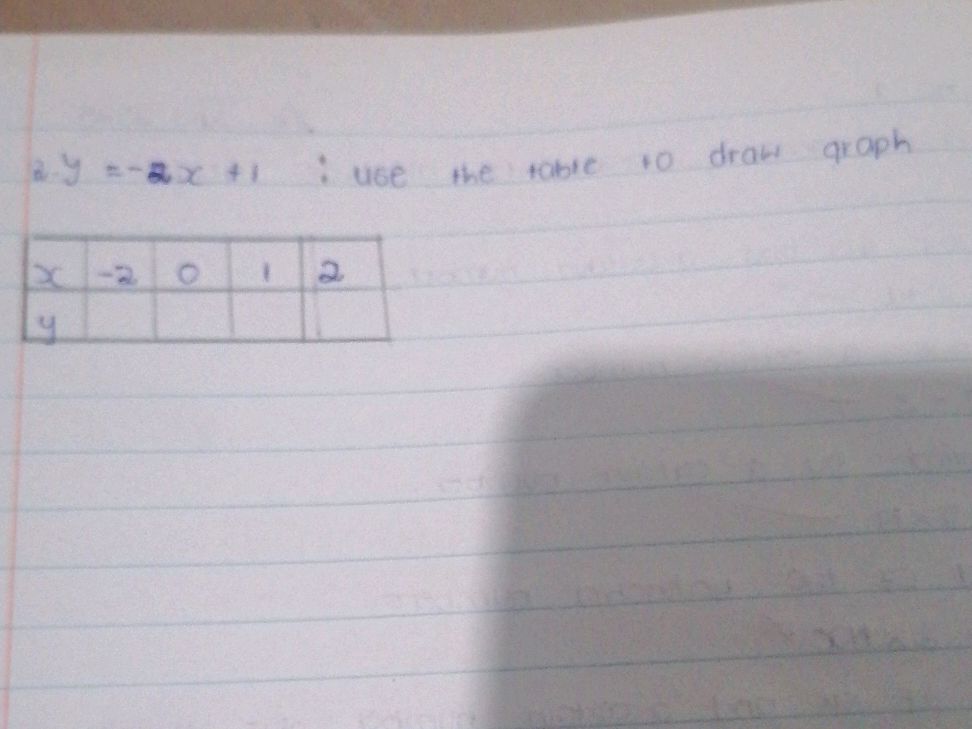 2. y = -2x + 1 : use the table to draw graph
x -2 0 1 2
y